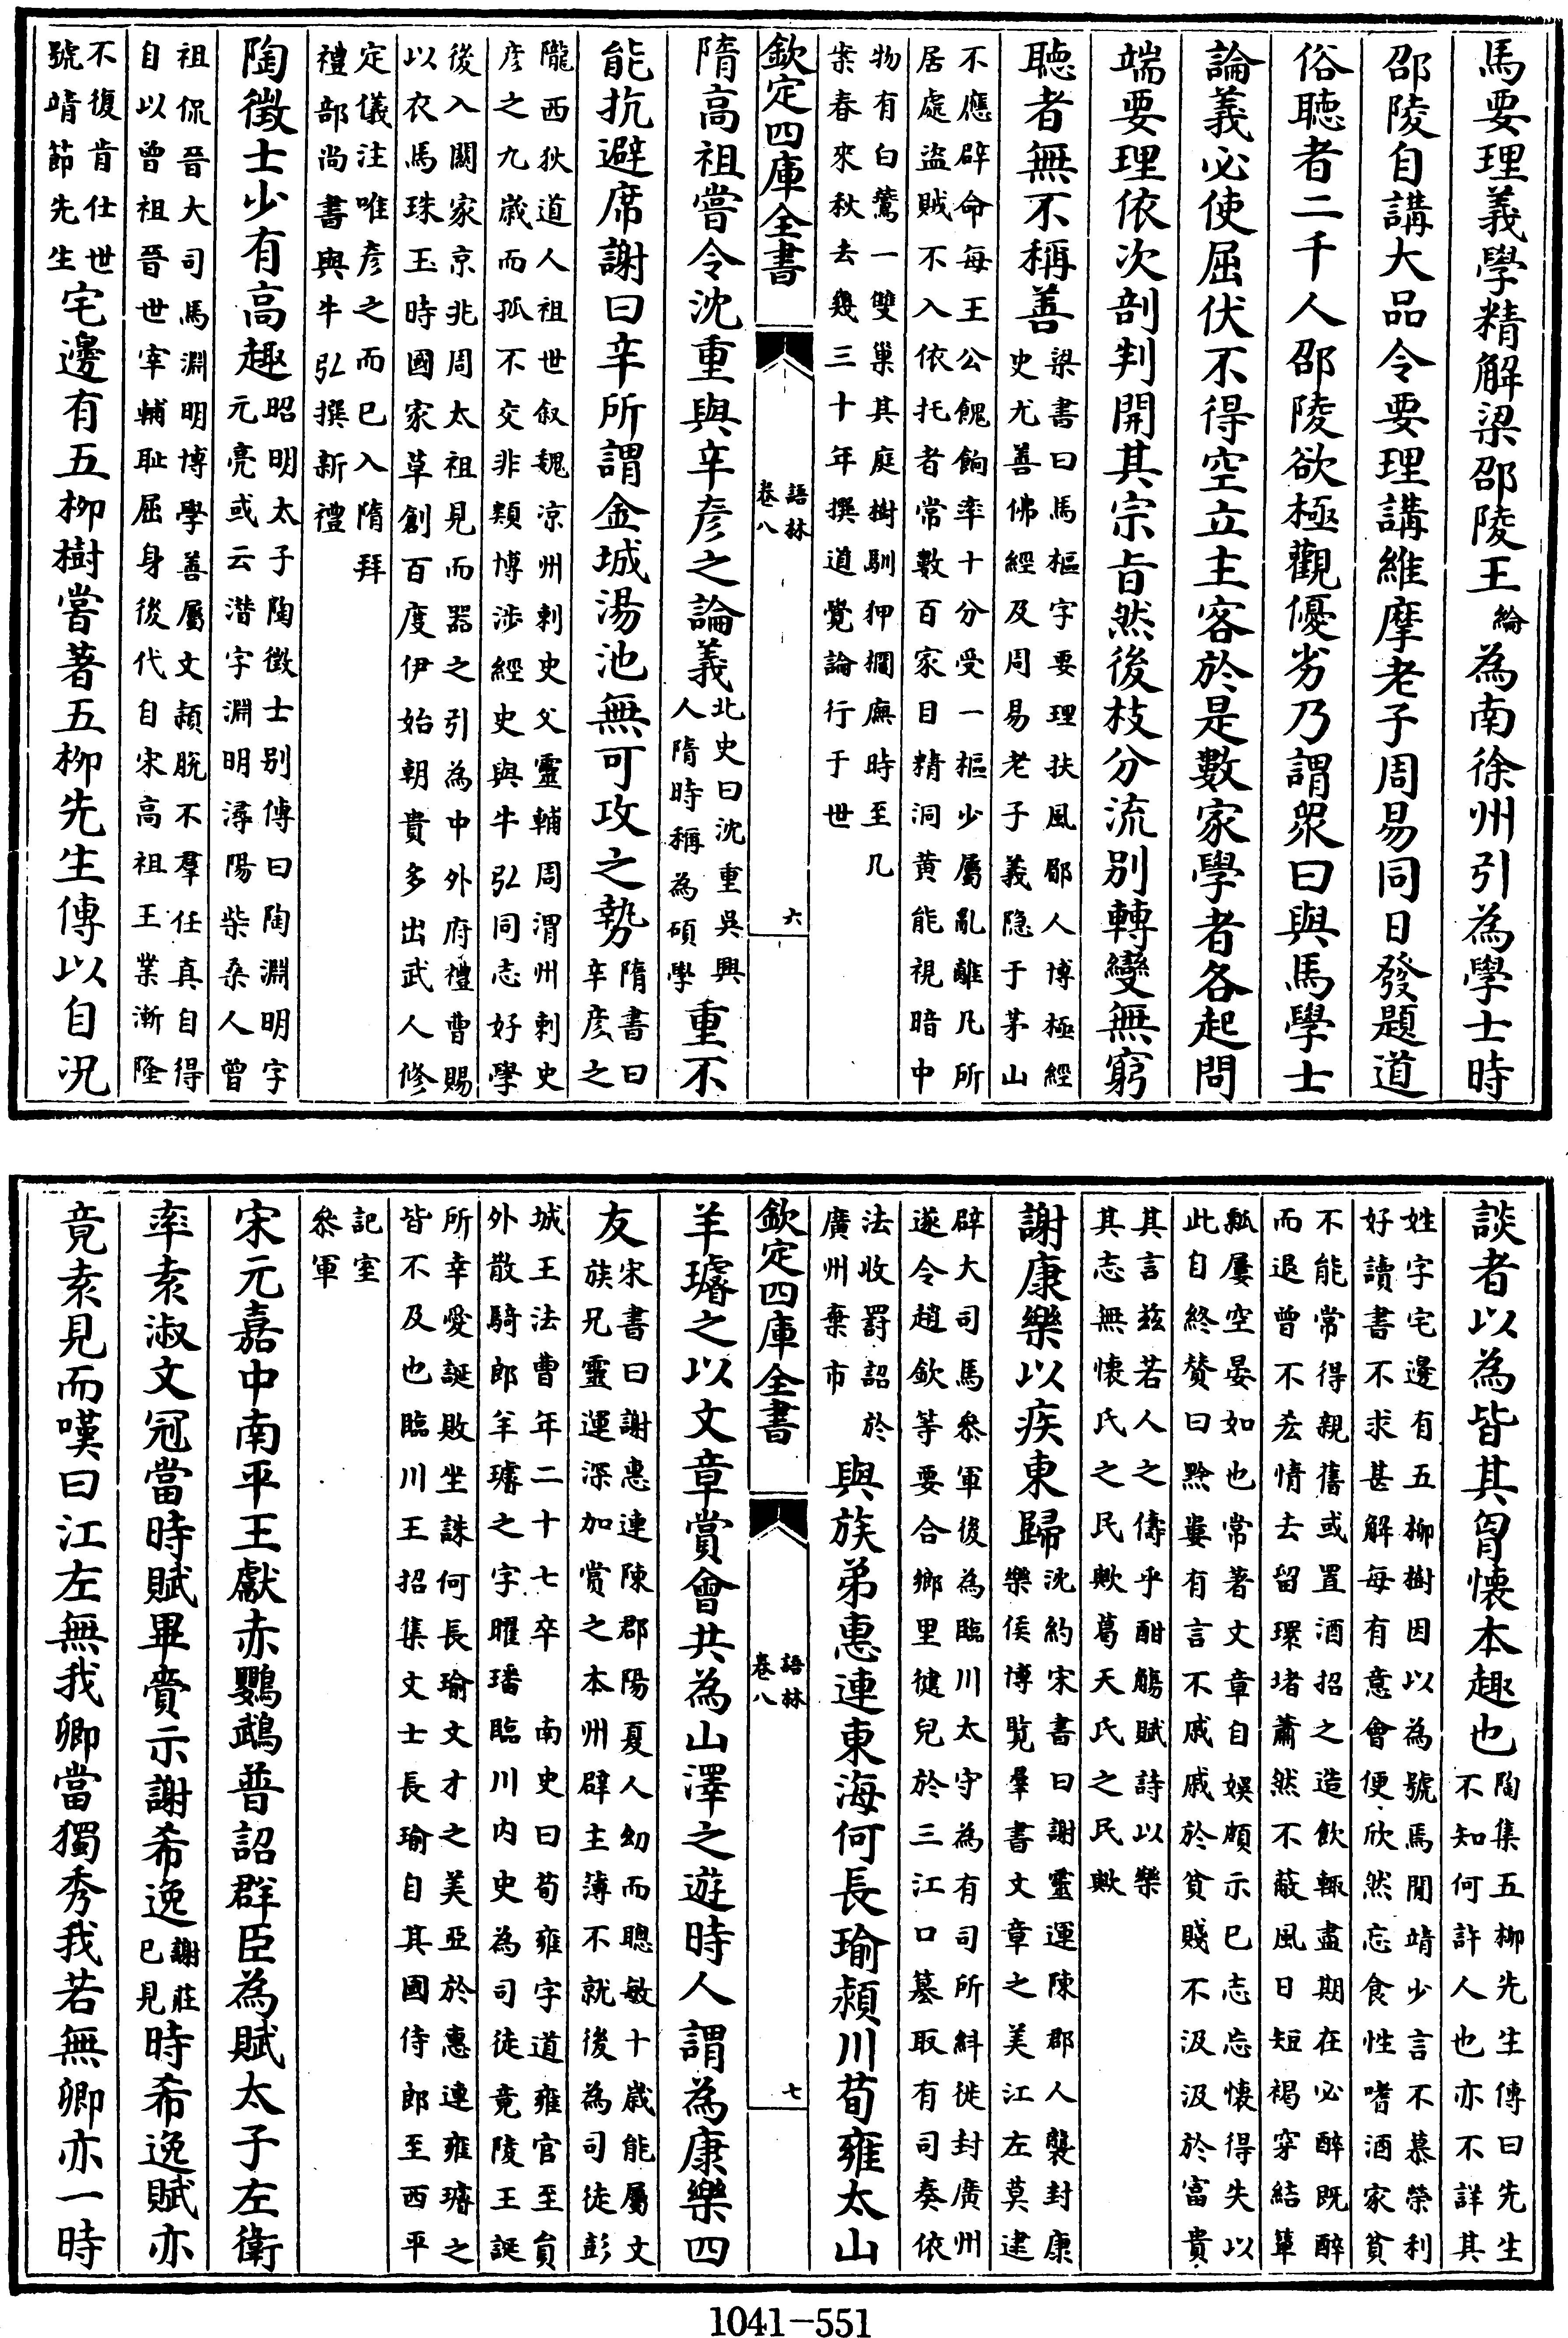 馬要理義學精解梁邵陵王綸為南徐州引為學士時
邵陵自講大品令要理講維摩老子周易同日發題道
俗聽者二千人邵陵欲極觀優劣乃謂眾曰與馬學士
論義必使屈伏不得空立主客於是數家學者各起問
端要理依次剖判開其宗旨然後枝分流別轉變無窮
聽者無不稱善梁書曰馬樞字要理扶風郿人博極經
史尤善佛經及周易老子義隱于茅山
不應辟命每王公餽餉率十分受一樞少屬亂離凡所
居處盜賊不入依托者常數百家目精洞黃能視暗中
物有白鷰一雙巢其庭樹馴狎櫚廡時至几
案春來秋去幾三十年撰道覺論行于世
欽定四庫全書
語林
卷八
六
隋高祖嘗令沈重與辛彥之論義北史曰沈重吳興
人隋時稱為碩學重不
能抗避席謝曰辛所謂金城湯池無可攻之勢隋書曰
辛彥之
隴西狄道人祖世叙魏凉州刺史父靈輔周渭州刺史
彥之九歲而孤不交非類博涉經史與牛弘同志好學
後入關家京兆周太祖見而器之引為中外府禮曹賜
以衣馬珠玉時國家草創百度伊始朝貴多出武人修
定儀注唯彥之而已入隋拜
禮部尚書與牛弘撰新禮
陶徵士少有高趣昭明太子陶徵士别傳曰陶淵明字
元亮或云潛字淵明潯陽柴桑人曾
祖侃晉大司馬淵明博學善屬文頴脫不羣任真自得
自以曾祖晉世宰輔耻屈身後代自宋高祖王業漸隆
不復肯仕世
號靖節先生宅邊有五柳樹嘗著五柳先生傳以自况
談者以為皆其胷懷本趣也陶集五柳先生傳曰先生
不知何許人也亦不詳其
姓字宅邊有五柳樹因以為號焉閒靖少言不慕榮利
好讀書不求甚解每有意會便欣然忘食性嗜酒家貧
不能常得親舊或置酒招之造飲輒盡期在必醉既醉
而退曾不吝情去留環堵蕭然不蔽風日短褐穿結簞
瓢屢空晏如也常著文章自娛頗示已志忘懷得失以
此自終贊曰黔婁有言不戚戚於貧賤不汲汲於富貴
其言茲若人之儔乎酣觴賦詩以樂
其志無懷氏之民歟葛天氏之民歟
謝康樂以疾東歸沈約宋書曰謝靈運陳郡人襲封康
樂侯博覽羣書文章之美江左莫逮
辟大司馬叅軍後為臨川太守為有司所糾徙封廣州
遂令趙欽等要合鄉里健兒於三江口墓取有司奏依
法收罸詔於
廣州棄市與族弟惠連東海何長瑜潁川荀雍太山
欽定四庫全書
語林
卷八
七
羊璿之以文章賞會共為山澤之遊時人謂為康樂四
友宋書曰謝惠連陳郡陽夏人幼而聰敏十歲能屬文
族兄靈運深加賞之本州辟主簿不就後為司徒彭
城王法曹年二十七卒南史曰荀雍字道雍官至員
外散騎郎羊璿之字曜璠臨川内史為司徒竟陵王誕
所幸愛誕敗坐誅何長瑜文才之美亞於惠連雍璿之
皆不及也臨川王招集文士長瑜自其國侍郎至西平
記室
叅軍
宋元嘉中南平王獻赤鸚鵡普詔群臣為賦太子左衛
率袁淑文冠當時賦畢賷示謝希逸謝莊
已見時希逸賦亦
竟袁見而嘆曰江左無我卿當獨秀我若無卿亦一時
1041-551